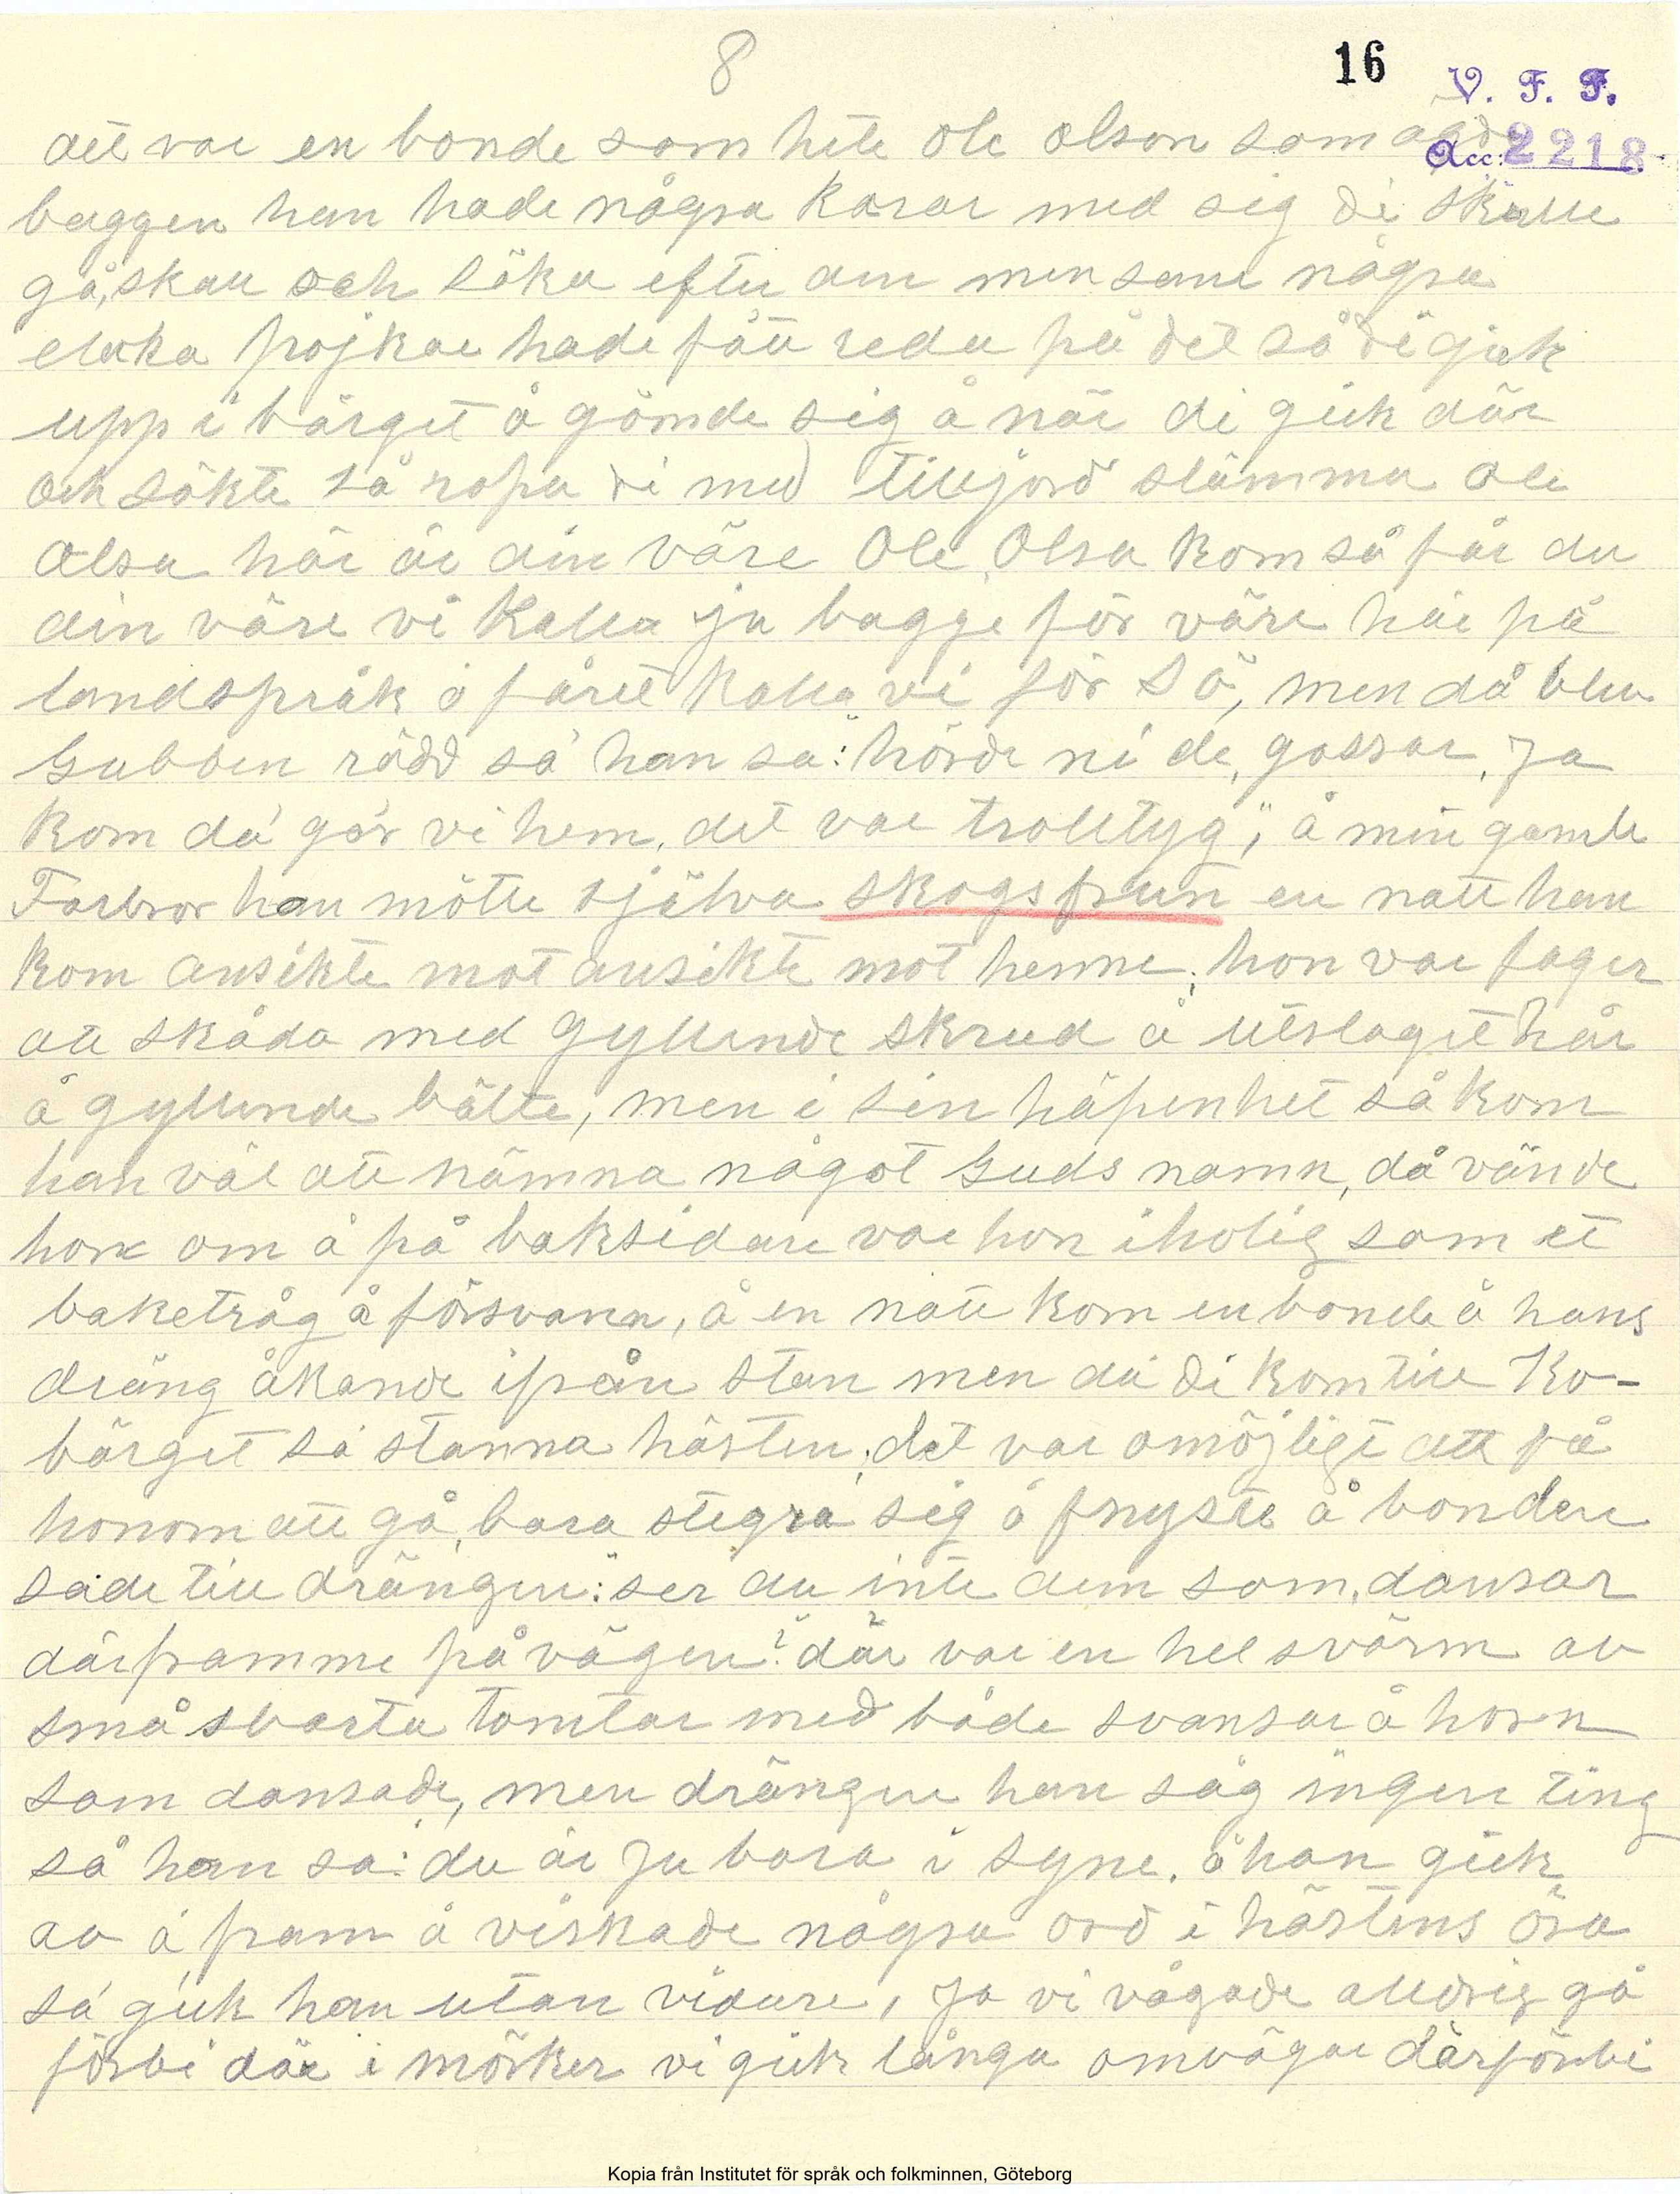 8
16
V. F. F.
Acc: 2218
det var en bonde som hete Ole Olson som
baggen han hade några karar med sig di skulle
gå skall och söka efter den men sane några
elaka pojkar hade fått reda på det så di gick
upp i bärget å gömde sig å när di gick där
och sökte så ropa di med tillgjord stämma Ole
Olsa här är din väre Ole, Olsa kom så får du
din väre vi kalla ju bagge för väre här på
landspråk å fåret kalla vi för Sö, men då blev
Gubben rädd så han sa: hörde ni de, gossar, Ja
kom då går vi hem, det var trolltyg," å min gamle
Farbror han mötte själva skogsfrun en natt han
kom ansikte mot ansikte mot henne, hon var fager
att skåda med gyllende skrud å utslaget hår
å gyllende bälte, men i sin häpenhet så kom
han väl att nämna något Guds namn, då vände
hon om å på baksidan var hon iholig som et
baketråg å försvann, å en natt kom en bonde å hans
dräng åkande ifrån stan men då di kom till Ko-
bärget så stanna hästen, det var omöjligt att få
honom att gå, bara stegra sig å fnyste å bonden
sade till drängen: "ser du inte dem som dansar
därframme på vägen?" där var en hel svärm av
små svarta tomtar med både svansar å horn
som dansade, men drängen han såg ingen ting
så han sa: du är ju bara i syne. å han gick
av å fram å viskade några ord i hästens öra
så gick han utan vidare, Ja vi vågade alldrig gå
förbi där i mörker vi gick långa omvägar därförbi
Kopia från Institutet för språk och folkminnen, Göteborg